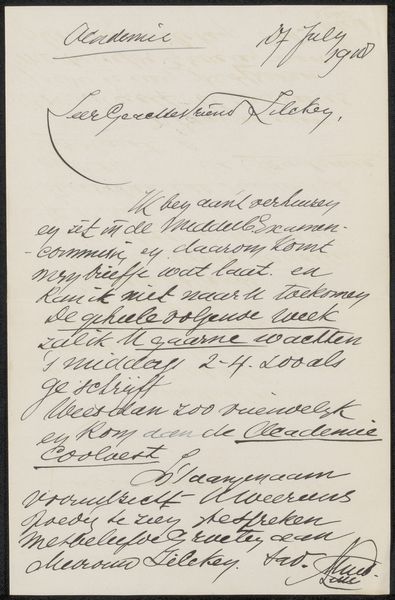 Academie
17 July
1908
Zeer Geachte Vriend Zilcken,
Ik ben aan't verhuizen
en zit in de Middelb Examen-
-commissie en daarom komt
mijn briefje wat laat. en
kan ik niet naar U toekomen
De geheele volgende week
zal ik U gaarne wachten
's middags 2-4. zooals
ge schrijft
Wees dan zoo vriendelijk
en kom aan de Academie
Coolvest
In 't aangenaam
vooruitzicht U weer eens
spoedig te zien
met beleefde Groeten aan
Mevrouw Zilcken.